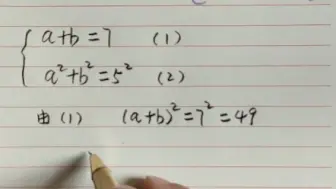 a+b=7 (1)
a²+b²=5² (2)
由(1) (a+b)²=7²=49